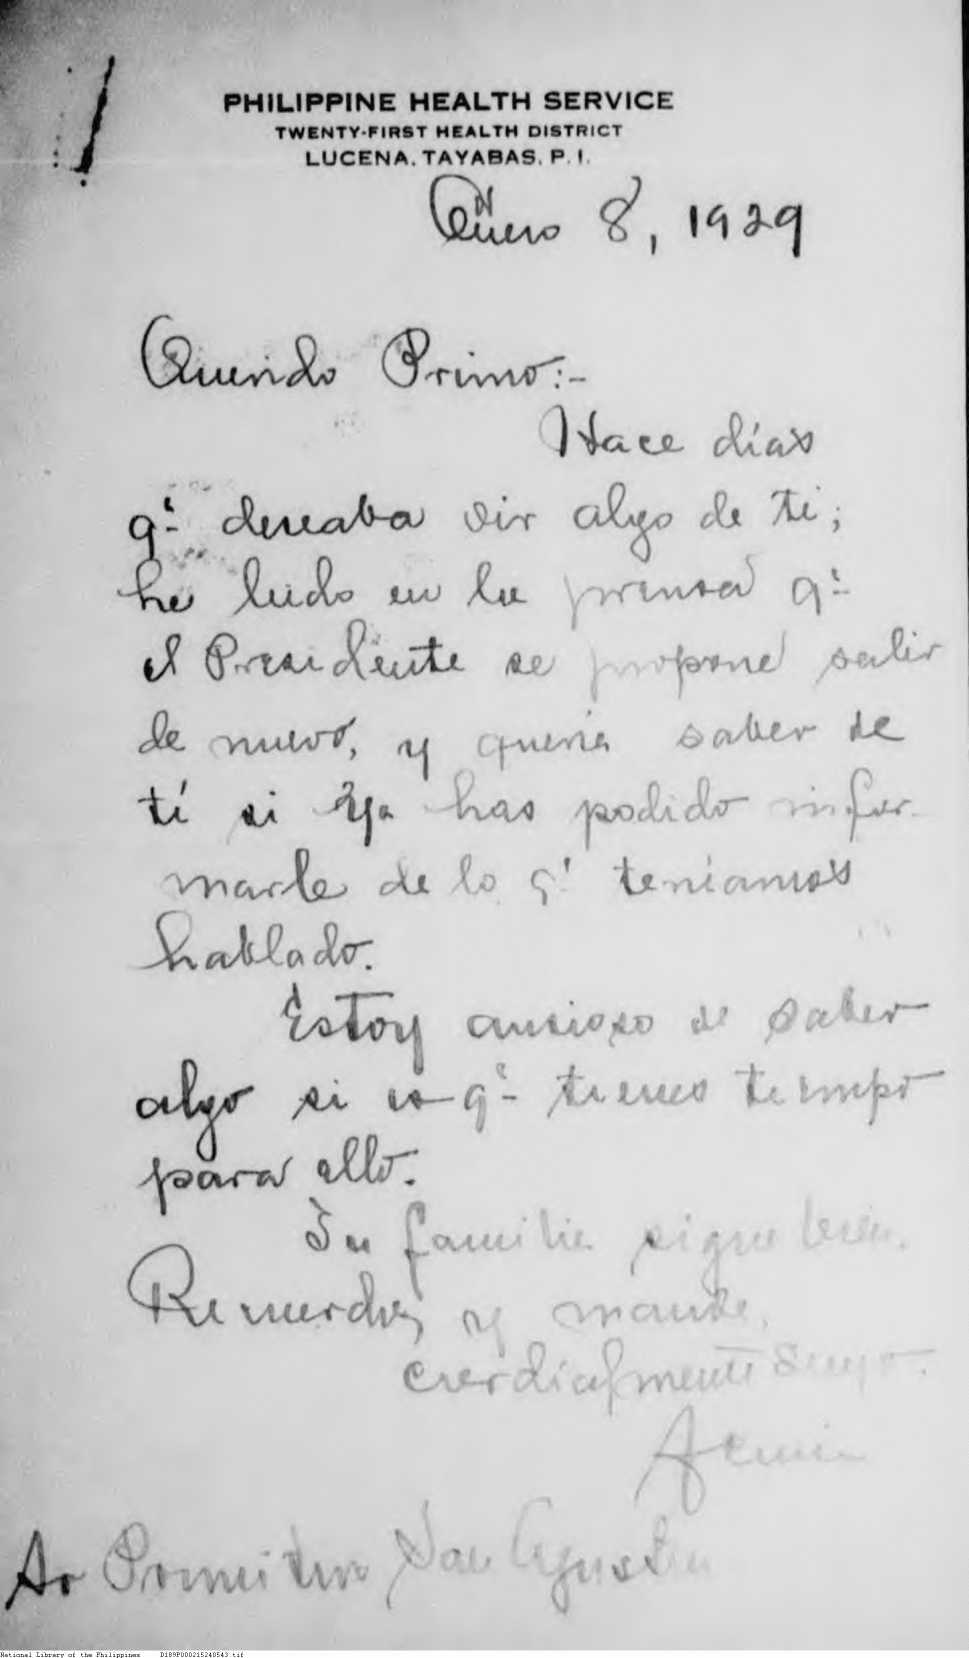 PHILIPPINE HEALTH SERVICE
TWENTY-FIRST HEALTH DISTRICT
LUCENA, TAYABAS, P. I.
Enero 8, 1929
Querido Primo:-
Hace días
q.e deseaba oir algo de ti;
he leido en la prensa q.e
el Presidente se propone salir
de nuevo, y queria saber de
tí si ya has podido infor-
marle de lo q.e teniamos
hablado.
Estoy ansioso de saber
algo si es q.e tienes tiempo
para ello.
Tu familia sigue bien.
Recuerdos y mande.
Cordialmente suyo.
Sr Primitivo San Agustin
National Library of the Philippines D189P000215240543.tif